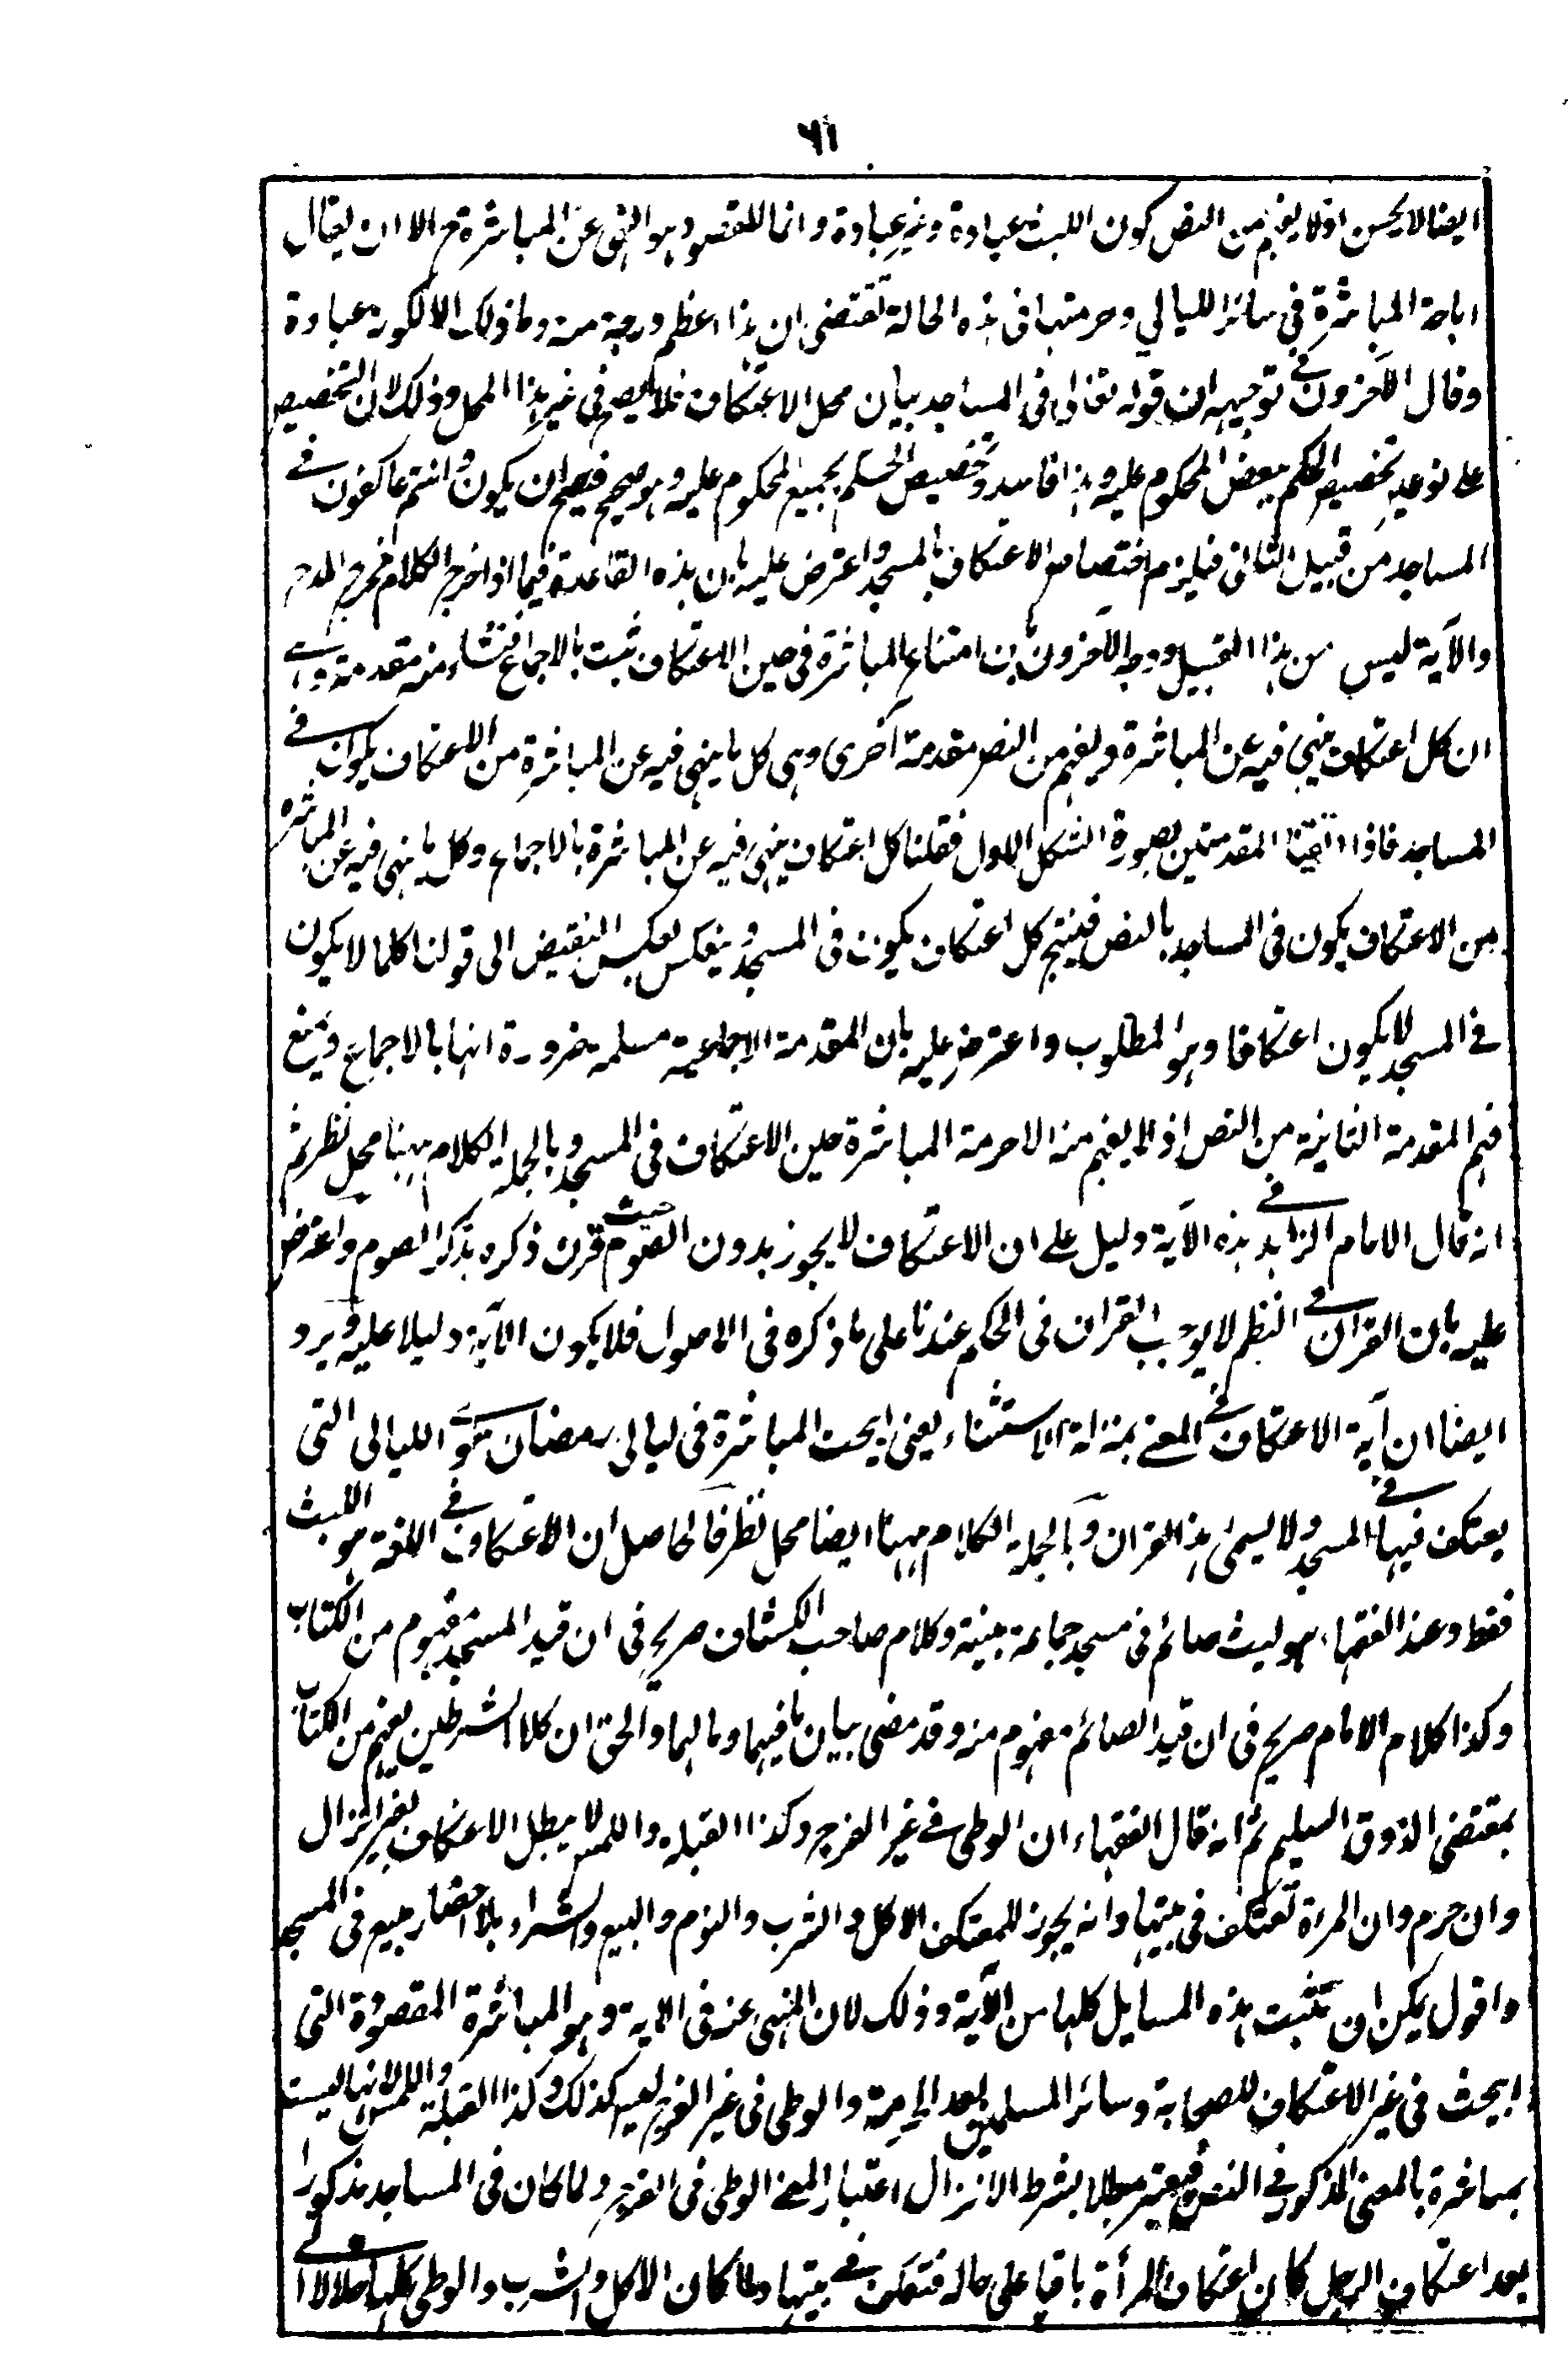 ٦١
ايضا لا يحسن اذ لا يفهم من النص كون اللبث عبادة وغير عبادة وانما المقصود هو النهى عن المباشرة ح الا ان يقال
اباحة المباشرة فى سائر الليالي وحرمتها فى هذه الحالة تقتضى ان هذا اعظم درجة منه وما ذلك الا لكونه عبادة
وقال الآخرون فى توجيهه ان قوله تعالى فى المساجد بيان محل الاعتكاف فلا يصح فى غير هذا المحل وذلك لان التخصيص
على نوعين تخصيص الحكم ببعض المحكوم عليه وهذا فاسد وتخصيص الحكم بجميع المحكوم عليه وهو صحيح فيصح ان يكون وانتم عاكفون فى
المساجد من قبيل الثانى فيلزم اختصاص الاعتكاف بالمسجد واعترض عليه بان هذه القاعدة فيما اذا خرج الكلام مخرج المدح
والآية ليس من هذا القبيل ووجه الآخرون بان امتناع المباشرة فى حين الاعتكاف ثبت بالاجماع فنشاء منه مقدمة وهى
ان كل اعتكاف ينهى فيه عن المباشرة ويفهم من النص مقدمة أخرى وهى كل ما ينهى فيه عن المباشرة من الاعتكاف يكون فى
المساجد فاذا القينا المقدمتين بصورة الشكل الاول فقلنا كل اعتكاف ينهى فيه عن المباشرة بالاجماع وكل ما ينهى فيه عن المباشرة
من الاعتكاف يكون فى المساجد بالنص فينتج كل اعتكاف يكون فى المسجد وينعكس بعكس النقيض الى قولنا كلما لا يكون
فى المسجد لا يكون اعتكافا وهو المطلوب واعترض عليه بان المقدمة الاجماعية مسلمة ضرورة انها بالاجماع ويمنع
فهم المقدمة الثانية من النص اذ لا يفهم منه الا حرمة المباشرة حين الاعتكاف فى المسجد وبالجملة الكلام ههنا محل نظر ثم
انه قال الامام الزاهد فى هذه الآية دليل على ان الاعتكاف لا يجوز بدون الصوم حيث قرن ذكره بذكر الصوم واعترض
عليه بان القران فى النظم لا يوجب القران فى الحكم عندنا على ما ذكره فى الاصول فلا يكون الآية دليلا عليه ويرد
ايضا ان آية الاعتكاف فى المعنى بمنزلة الاستثناء يعنى ابحت المباشرة فى ليالى رمضان سوى الليالى التى
يعتكف فيها فى المسجد ولا يسمى هذا القران وبالجملة الكلام ههنا ايضا محل نظر فالحاصل ان الاعتكاف فى اللغة هو اللبث
فقط وعند الفقهاء هو لبث صائم فى مسجد جماعة بنية وكلام صاحب الكشاف صريح فى ان قيد المسجد مفهوم من الكتاب
وكذا كلام الامام صريح فى ان قيد الصائم مفهوم منه وقد مضى بيان ما فيهما وما لهما والحق ان كلا الشرطين يفهم من الكتاب
بمقتضى الذوق السليم ثم انه قال الفقهاء ان الوطى فى غير الفرج وكذا القبلة واللمس لا يبطل الاعتكاف بغير انزال
وان حرم وان المرءة تعتكف فى بيتها وانه يجوز للمعتكف الاكل والشرب والنوم والبيع والشراء بلا احضار مبيع فى المسجد
واقول يمكن ان تثبت هذه المسايل كلها من الآية وذلك لان المنهى عنه فى الاية وهو المباشرة المقصودة التى
ابيحت فى غير الاعتكاف للصحابة وسائر المسلمين بعد الحرمة والوطى فى غير الفرج ليس كذلك وكذا القبلة واللمس لانها ليست
بمباشرة بالمعنى المذكور فى النص فيعتبر مبطلا بشرط الانزال اعتبارا لمعنى الوطى فى الفرج ولما كان فى المساجد مذكورا
بعد اعتكاف الرجل كان اعتكاف المرأة باقيا على حاله فتعتكف فى بيتها ولما كان الاكل والشرب والوطى كلها حلالا